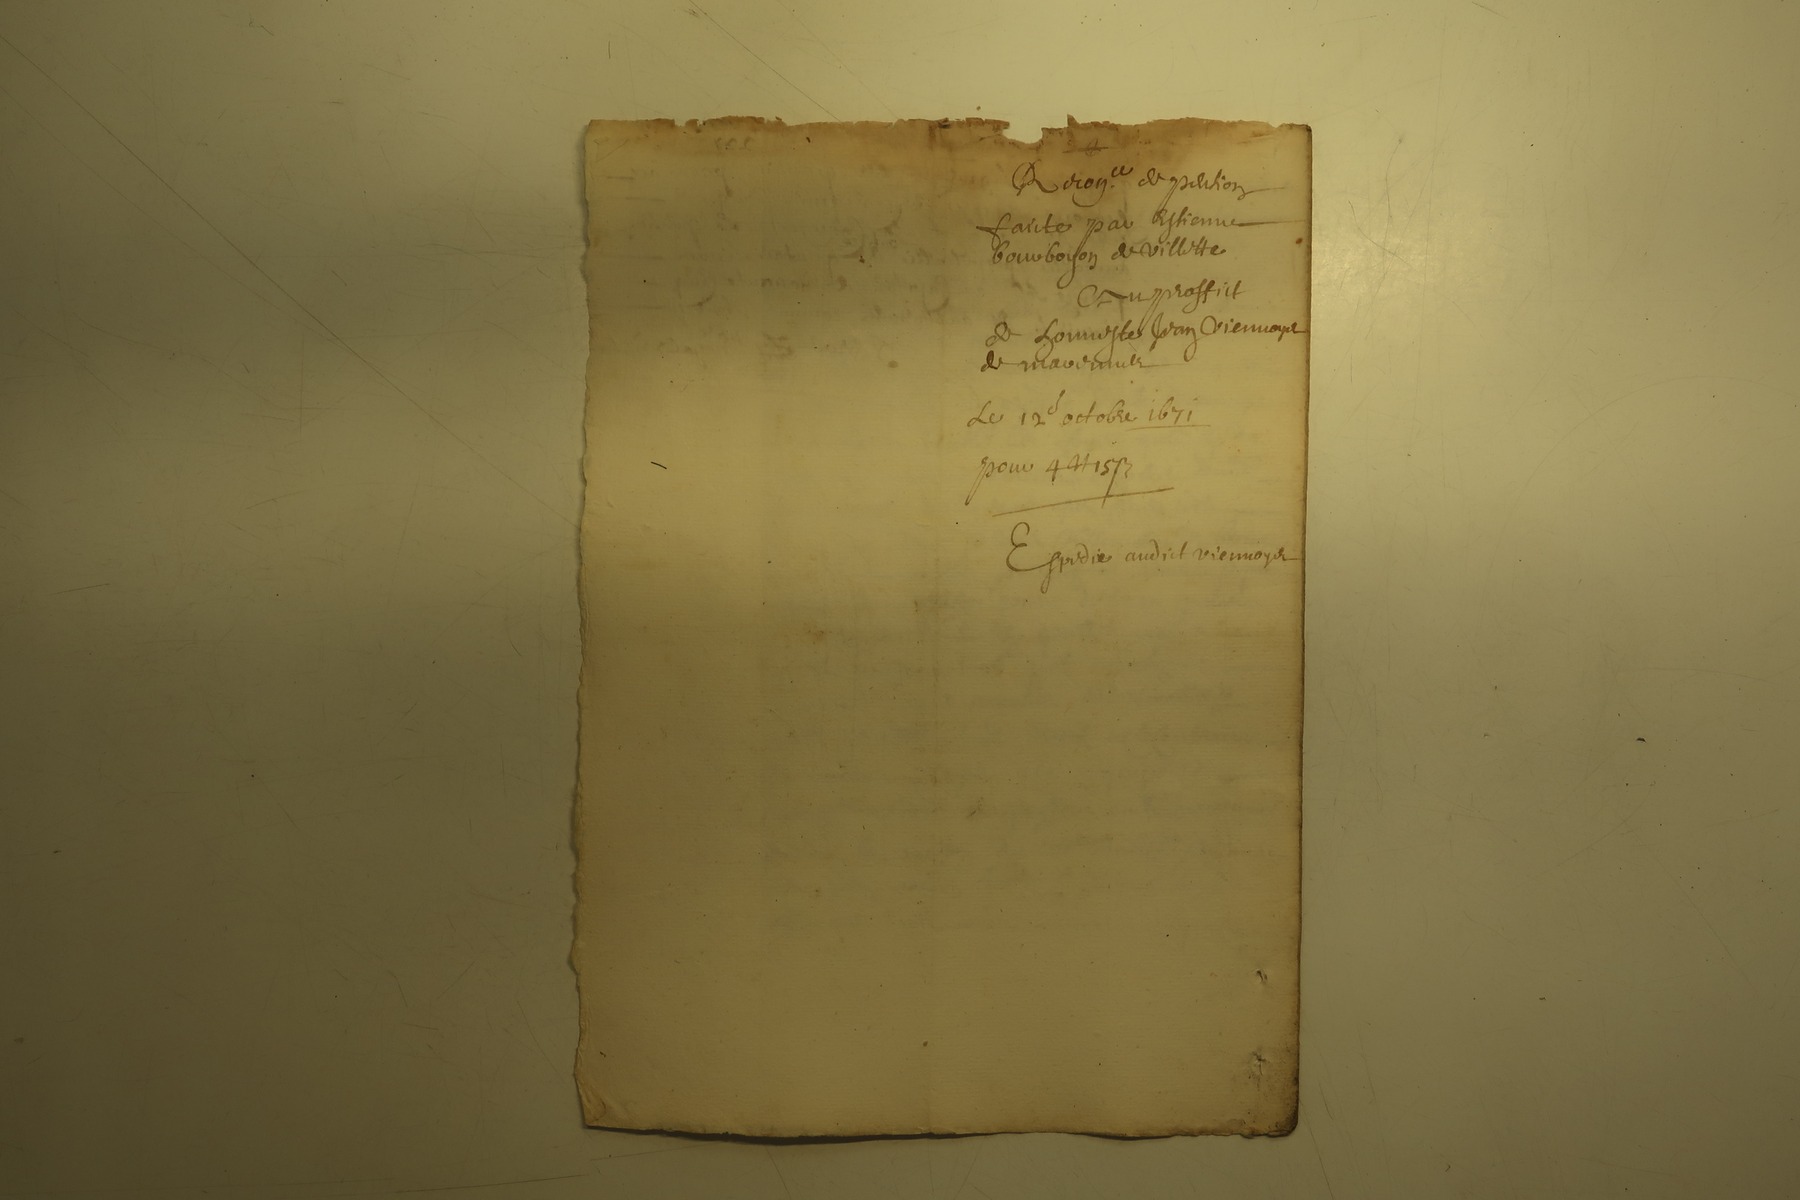 Recoy.ce de pention
faicte par Estienne
bourboson de villette
Au proffict
de honneste Jean Viennoye
de
Le 12e octobre 1671
pour 4
Espedie audict viennoye